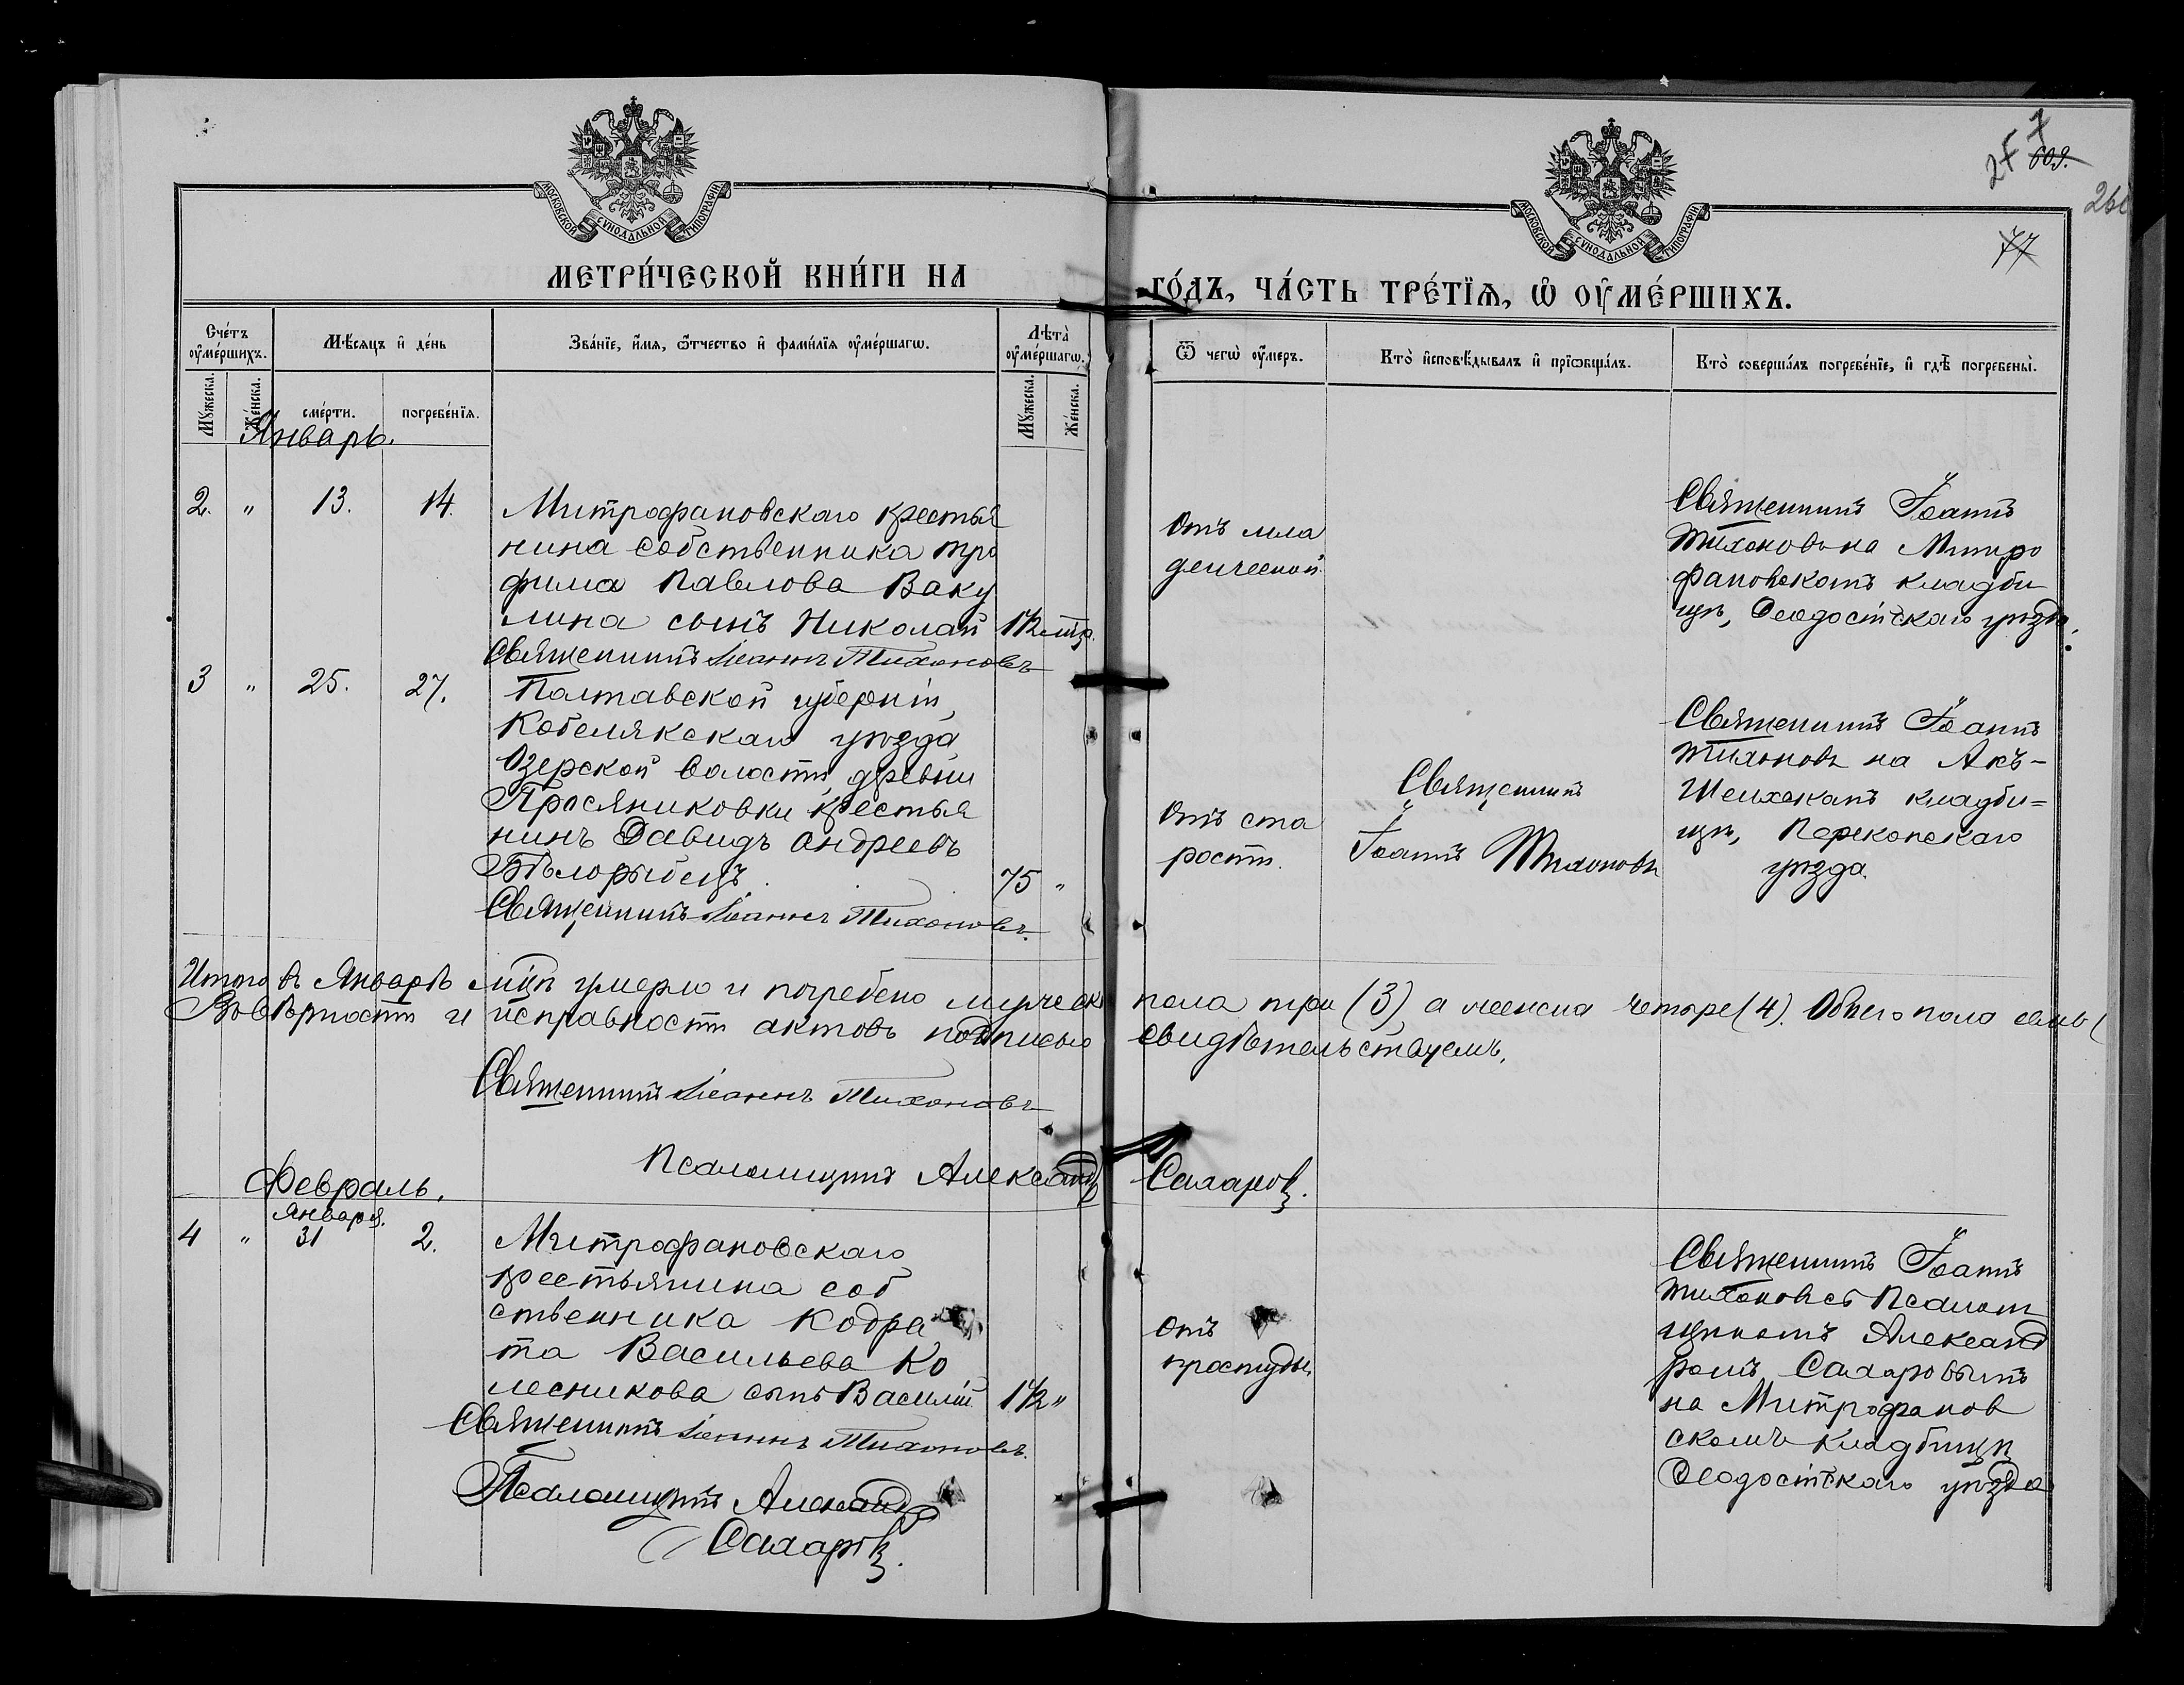 МОСКОВСКОЙ СѴНОДАЛЬНОЙ ТИПОГРАФІИ
МОСКОВСКОЙ СѴНОДАЛЬНОЙ ТИПОГРАФІИ
609.
77
МЕТРИ́ЧЕСКОЙ КНИ́ГИ НА
ГО́ДЪ, ЧА́СТЬ ТРЕ́ТІѦ, Ѡ҆ ОУ҆МЕ́РШИХЪ.
Сче́тъ оу҆ме́ршихъ.
Мѣ́сяцъ и҆ де́нь
Зва́нїе, и҆́мя, ѻ҆́тчество и҆ фами́лїя оу҆ме́ршагѡ.
Лѣта̀ оу҆ме́ршагѡ.
Ѿ чегѡ̀ оу҆́меръ.
Кто̀ и҆сповѣ́дывалъ и҆ прїѡбща́лъ.
Кто̀ соверша́лъ погребе́нїе, и҆ гдѣ̀ погребены̀.
Мꙋ́жеска.
Же́нска.
сме́рти.
погребе́нїя.
Мꙋ́жеска.
Же́нска.
Январь.
2. " 13. 14.
Митрофановскаго крестья
нина собственника Тро
фима Павлова Ваку
лина сынъ Николай 1½
Священникъ Іоаннъ Тихоновъ
Отъ мла
денческой.
Священникъ Іоаннъ
Тихоновъ на Митро
фановскомъ кладби
щѣ, Ѳеодосійскаго уѣзда.
3 " 25. 27.
Полтавской губерніи,
Кобелякскаго уѣзда
Озерской волости, деревни
Просяниковки крестья
нинъ Давидъ Андреевъ
Бѣлорыбецъ. 75 "
Священникъ Іоаннъ Тихоновъ.
Отъ ста
рости.
Священникъ
Іоаннъ Тихоновъ
Священникъ Іоаннъ
Тихоновъ на Акъ-
Шеихскомъ кладби=
щѣ, Перекопскаго
уѣзда.
Итого въ Январѣ мцѣ умерло и погребено мужеска пола три (3) а женска четыре (4). Обоего пола семь (
Въ вѣрности и исправности актовъ подписью свидѣтельствуемъ.
Священникъ Іоаннъ Тихоновъ
Псаломщикъ Александръ Сахаровъ.
Февраль.
Января.
4 " 31 2.
Митрофановскаго
крестьянина соб
ственника Кодра
та Васильева Ко
лесникова сынъ Василій 1½ "
Священникъ Іоаннъ Тихоновъ.
Псаломщикъ Александръ
Сахаровъ.
Отъ
простуды.
Священникъ Іоаннъ
Тихоновъ съ Псалом
щикомъ Александ
ромъ Сахаровымъ
на Митрофанов
скомъ кладбищѣ
Ѳеодосійскаго уѣзда